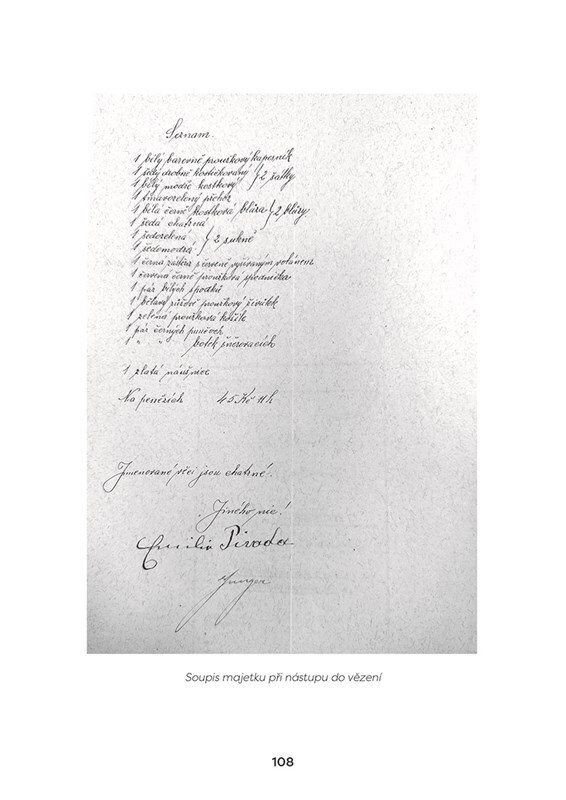 Seznam.
1 bílý barevně proužkový kapesník
1 šedý drobně kostičkovaný } 2 šátky
1 bílý modře kostkový
1 tmavozelený
1 bílá černě kostková blůza } 2 blůzy
1 šedá chatrná
1 šedozelená } 2 sukně
1 šedomodrá
1 černá zástěra s červeně vyšívaným volánem
1 červená černě proužková spodnička
1 pár bílých spodků
1 bělavý růžově proužkový živůtek
1 zelená proužková košile
1 pár černých punčoch
1 " " botek šněrovacích
1 zlatá náušnice
Na penězích 45 Kč 11 h
Jmenované věci jsou chatrné.
Jiného nic!
Emilie Pivoda
Soupis majetku při nástupu do vězení
108